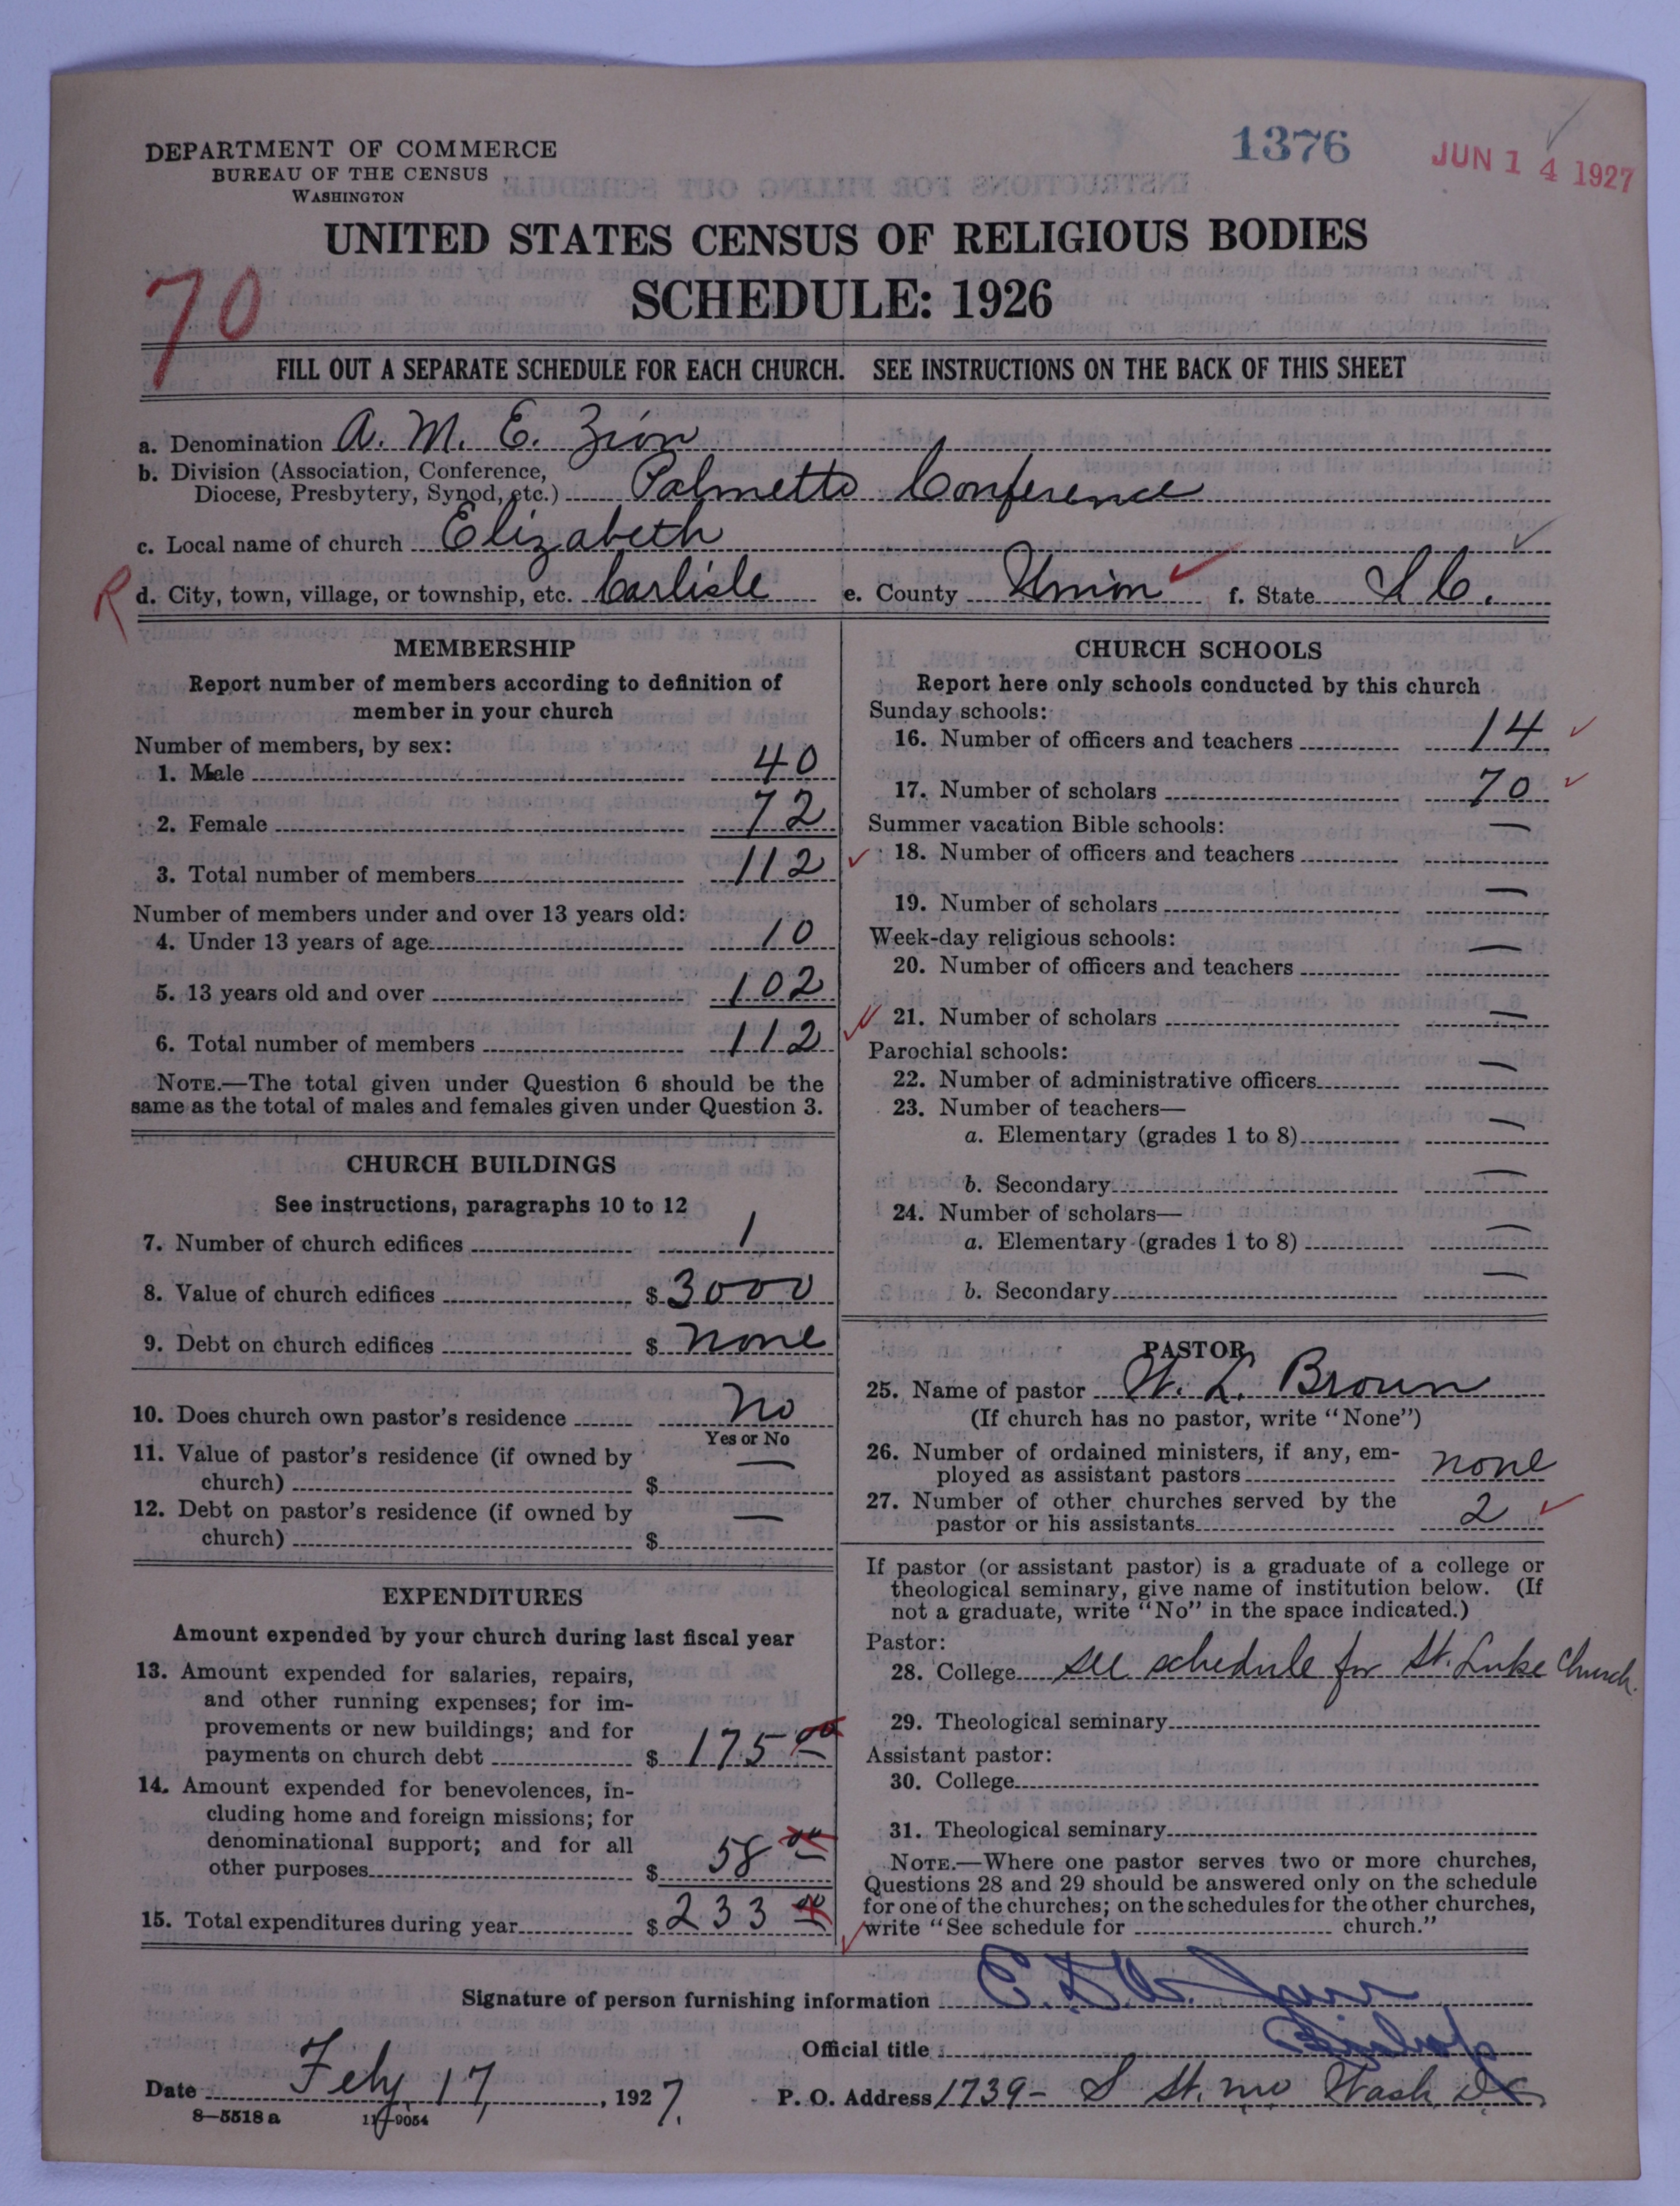 1376
JUN 14 1927
DEPARTMENT OF COMMERCE
BUREAU OF THE CENSUS
WASHINGTON
UNITED STATES CENSUS OF RELIGIOUS BODIES
SCHEDULE: 1926
70
FILL OUT A SEPARATE SCHEDULE FOR EACH CHURCH. SEE INSTRUCTIONS ON THE BACK OF THIS SHEET
a. Denomination A. M. E. Zion
b. Division (Association, Conference,
Diocese, Presbytery, Synod, etc.) Palmetto Conference
c. Local name of church Elizabeth
R d. City, town, village, or township, etc. Carlisle e. County Union f. State S. C.
MEMBERSHIP
Report number of members according to definition of
member in your church
Number of members, by sex:
1. Male 40
2. Female 72
3. Total number of members 112
Number of members under and over 13 years old:
4. Under 13 years of age 10
5. 13 years old and over 102
6. Total number of members 112
NOTE.—The total given under Question 6 should be the
same as the total of males and females given under Question 3.
CHURCH BUILDINGS
See instructions, paragraphs 10 to 12
7. Number of church edifices 1
8. Value of church edifices $ 3000
9. Debt on church edifices $ none
10. Does church own pastor's residence no
Yes or No
11. Value of pastor's residence (if owned by
church) $ —
12. Debt on pastor's residence (if owned by
church) $ —
EXPENDITURES
Amount expended by your church during last fiscal year
13. Amount expended for salaries, repairs,
and other running expenses; for im-
provements or new buildings; and for
payments on church debt $ 175 00
14. Amount expended for benevolences, in-
cluding home and foreign missions; for
denominational support; and for all
other purposes $ 58 00
15. Total expenditures during year $ 233 00
CHURCH SCHOOLS
Report here only schools conducted by this church
Sunday schools:
16. Number of officers and teachers 14
17. Number of scholars 70
Summer vacation Bible schools:
18. Number of officers and teachers —
19. Number of scholars —
Week-day religious schools:
20. Number of officers and teachers —
21. Number of scholars —
Parochial schools:
22. Number of administrative officers —
23. Number of teachers—
a. Elementary (grades 1 to 8) —
b. Secondary —
24. Number of scholars—
a. Elementary (grades 1 to 8) —
b. Secondary —
PASTOR
25. Name of pastor W. L. Brown
(If church has no pastor, write "None")
26. Number of ordained ministers, if any, em-
ployed as assistant pastors none
27. Number of other churches served by the
pastor or his assistants 2
If pastor (or assistant pastor) is a graduate of a college or
theological seminary, give name of institution below. (If
not a graduate, write "No" in the space indicated.)
Pastor:
28. College see schedule for St. Luke Church.
29. Theological seminary
Assistant pastor:
30. College
31. Theological seminary
NOTE.—Where one pastor serves two or more churches,
Questions 28 and 29 should be answered only on the schedule
for one of the churches; on the schedules for the other churches,
write "See schedule for church."
Signature of person furnishing information
Official title Bishop
Date Feby 17, 1927. P. O. Address 1739- S St. nw Wash DC
8—5518 a 11—9054